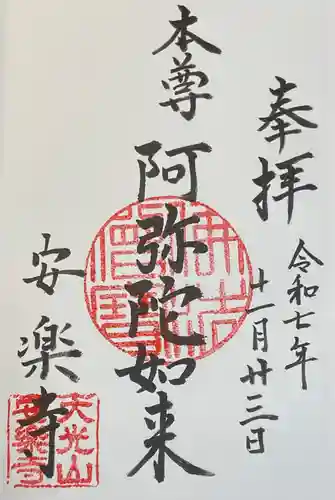 奉拝
令和七年
十一月廿三日
本尊
阿弥陀如来
安楽寺
佛法僧寳
天光山
安楽寺